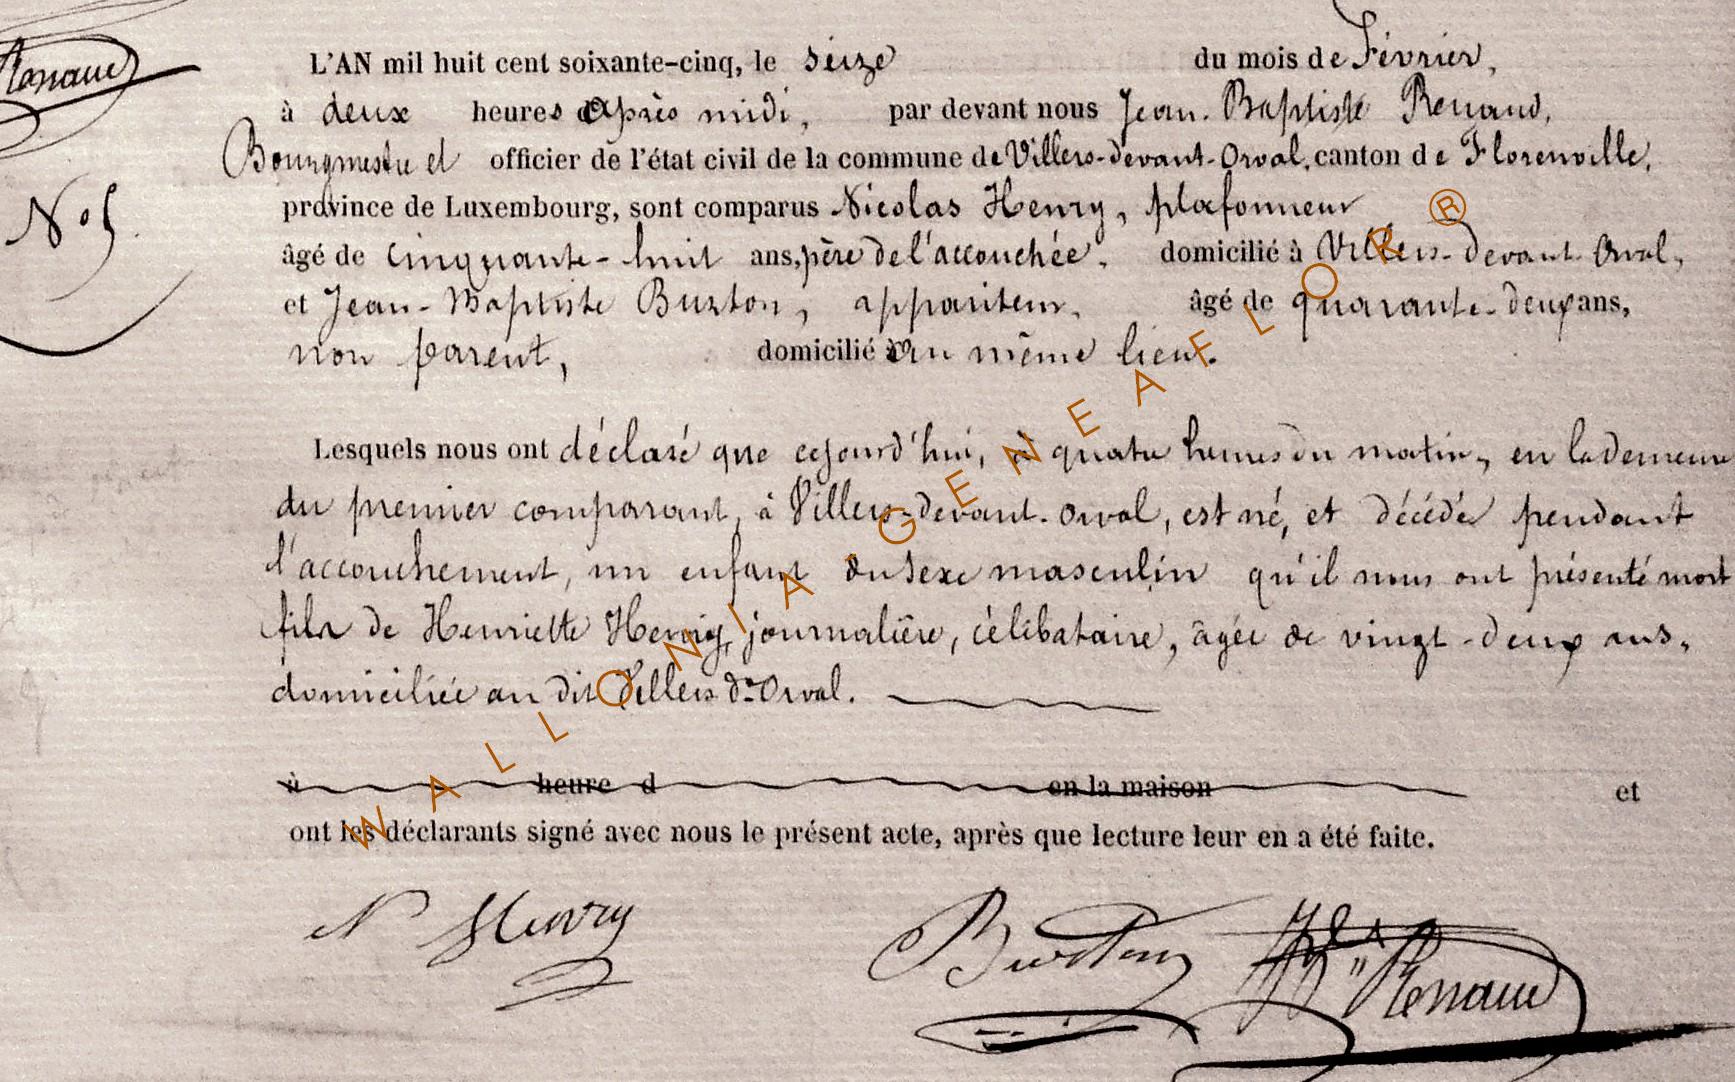 Renaud
L'AN mil huit cent soixante-cinq, le seize du mois de Février,
à deux heures après midi, par devant nous Jean-Baptiste Renaud,
Bourgmestre et officier de l'état civil de la commune de Villers-devant-Orval, canton de Florenville,
N° 5
province de Luxembourg, sont comparus Nicolas Henry, plafonneur
âgé de cinquante-huit ans, père de l'accouchée, domicilié à Villers-devant Orval,
et Jean-Baptiste Burton, appariteur, âgé de quarante-deux ans,
non parent, domicilié au même lieu.
Lesquels nous ont déclaré que cejourd'hui, à quatre heures du matin, en la demeure
du premier comparant, à Villers-devant-Orval, est né, et décédé pendant
l'accouchement, un enfant du sexe masculin qu'il nous ont présenté mort
fils de Henriette Henry, journalière, célibataire, âgée de vingt-deux ans,
domiciliée au dit Villers dt Orval.
à heure d en la maison et
ont les déclarants signé avec nous le présent acte, après que lecture leur en a été faite.
N Henry Burton JBte Renaud
WALLONIA-GENEAFLOR®